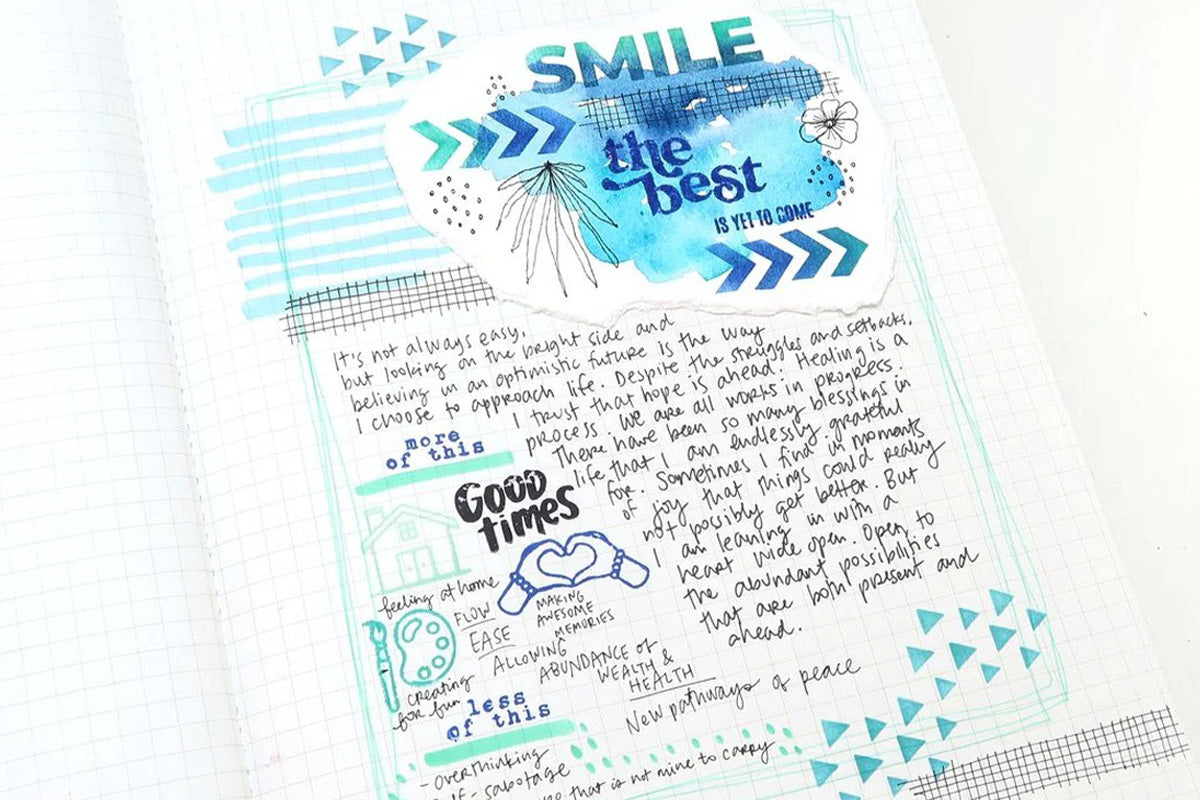 SMILE
the
best
IS YET TO COME
It's not always easy,
but looking on the bright side and
believing in an optimistic future is the way
I choose to approach life. Despite the struggles and setbacks,
I trust that hope is ahead. Healing is a
process. We are all works in progress.
There have been so many blessings in
life that I am endlessly grateful
for. Sometimes I find in moments
of joy that things could really
not possibly get better. But
I am leaning in with a
heart wide open. Open to
the abundant possibilities
that are both present and
ahead.
more
of this
GOOD
times
feeling at home
FLOW
EASE
MAKING
AWESOME
MEMORIES
ALLOWING
ABUNDANCE OF
WEALTH &
HEALTH
creating
for fun
New pathways of peace
less
of this
- overthinking
- sabotage
that is not mine to carry